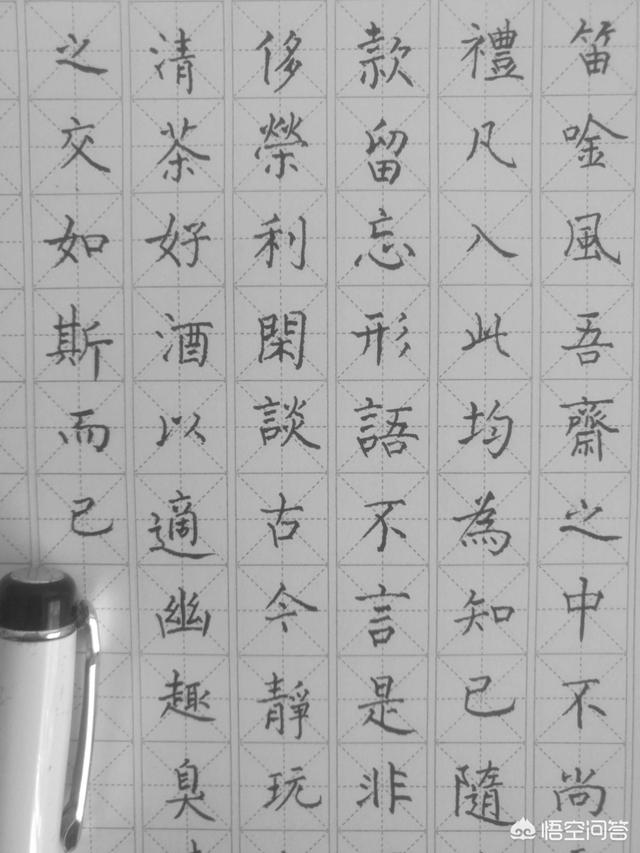 笛唫風吾齋之中不尚
禮凡入此均為知己隨
款留忘形語不言是非
侈榮利閑談古今靜玩
清茶好酒以適幽趣臭
之交如斯而已
悟空问答